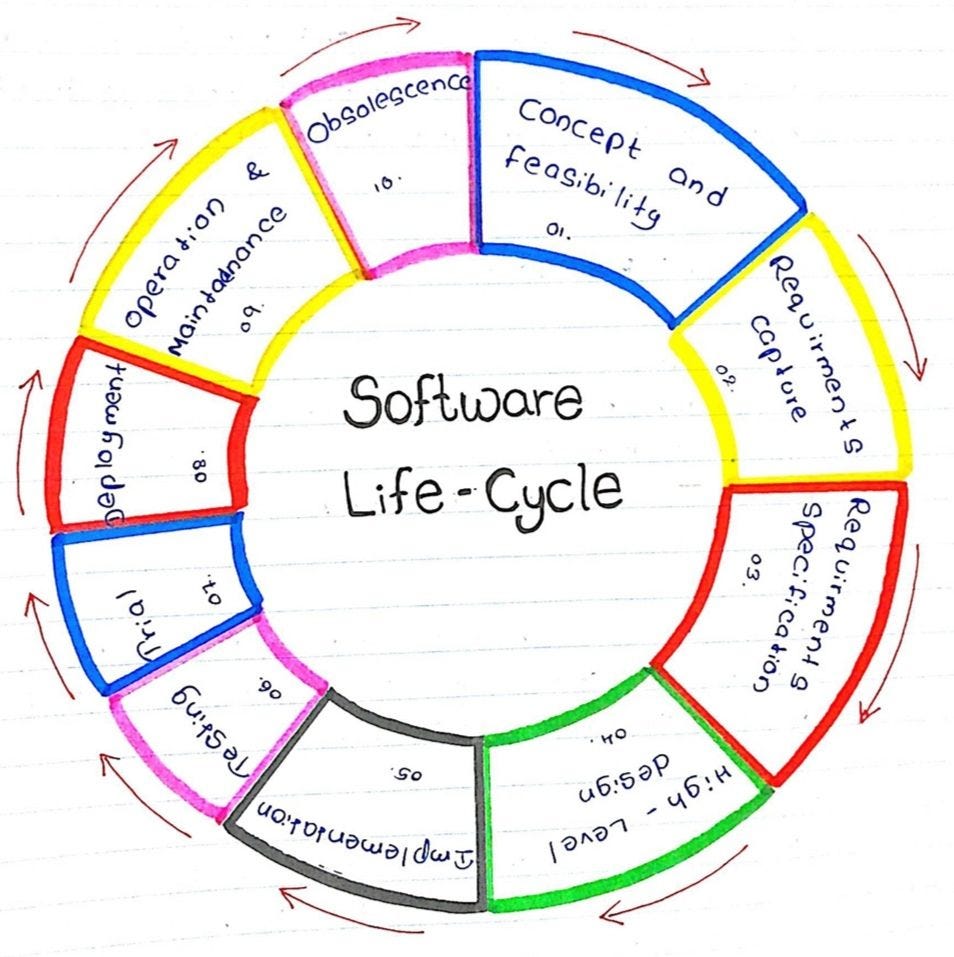 Software
Life-Cycle
Concept and
feasibility
01.
Requirments
capture
02.
Requirments
Specification
03.
High-Level
design
04.
Implementation
05.
Testing
06.
Trial
07.
Deployment
08.
Operation &
Maintadnance
09.
Obsolescence
10.